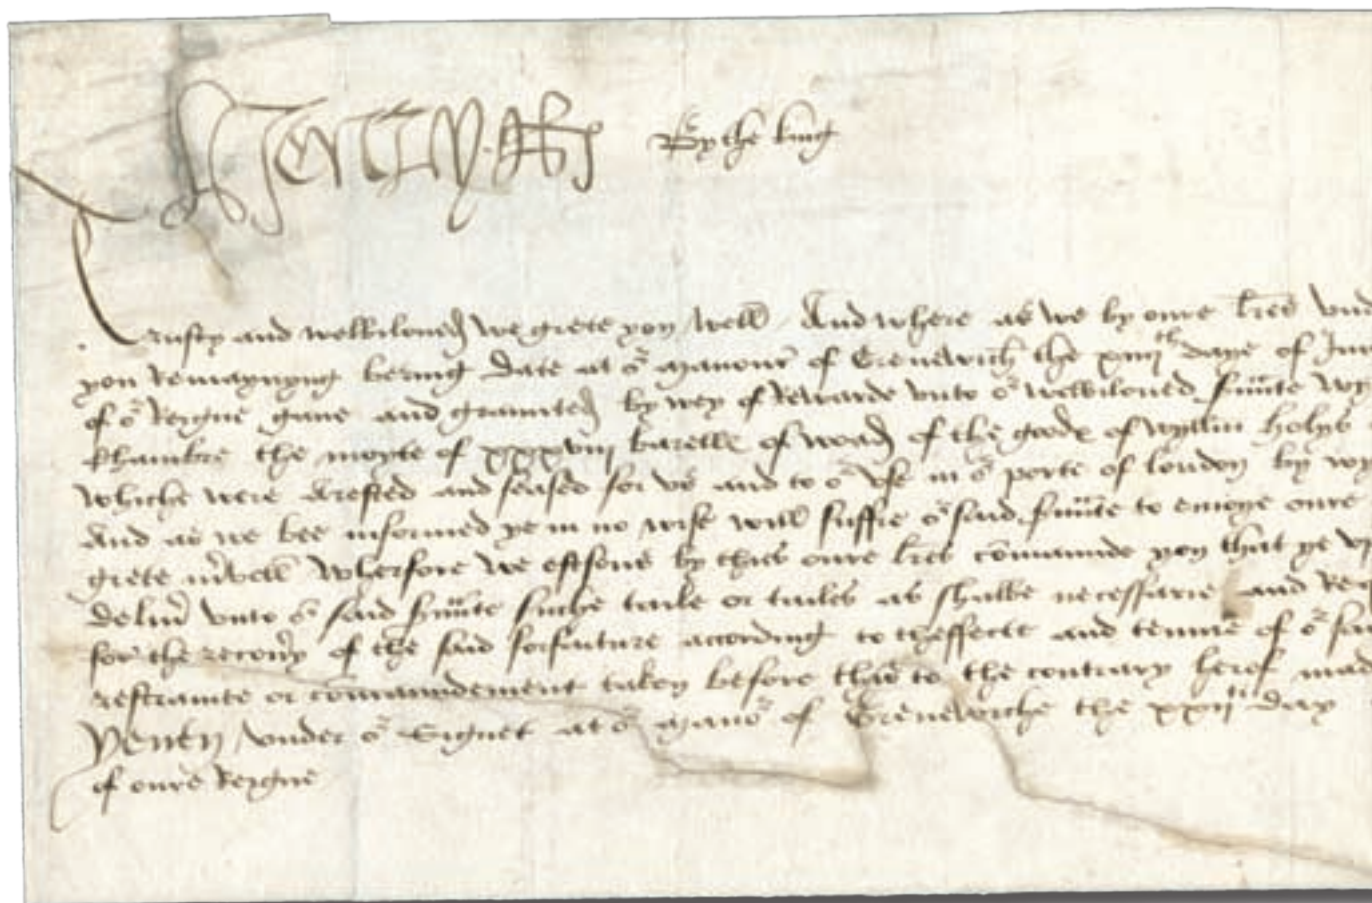 Henry R By the king
Trusty and welbiloued we grete you well And where as we by oure lres vnd
you Remaynyng bering date at or manour of Grenewich the xiiijth daye of
of or Reigne gaue and graunted by wey of Rewarde vnto or welbiloued suante Wy
chambre the moyte of xxxviij barelle of woad of the goode of Wyllm holyb
whiche were arrested and seased for vs and to or vse in or porte of london by wy
And as we bee informed ye in no wise woll suffre or said suante to enioye oure
grete mvell Wherfore we eftsone by thies oure lres comaunde you that ye vp
deliu vnto or said suante suche taile or tailes as shalbe necessarie and Re
for the recouy of the said forfaiture according to theffecte and tenure of or said
restrainte or comaundement taken before this to the contrary herof mad
Yeuen vnder or Signet at or manor of Grenewiche the xxij day
of oure Reigne